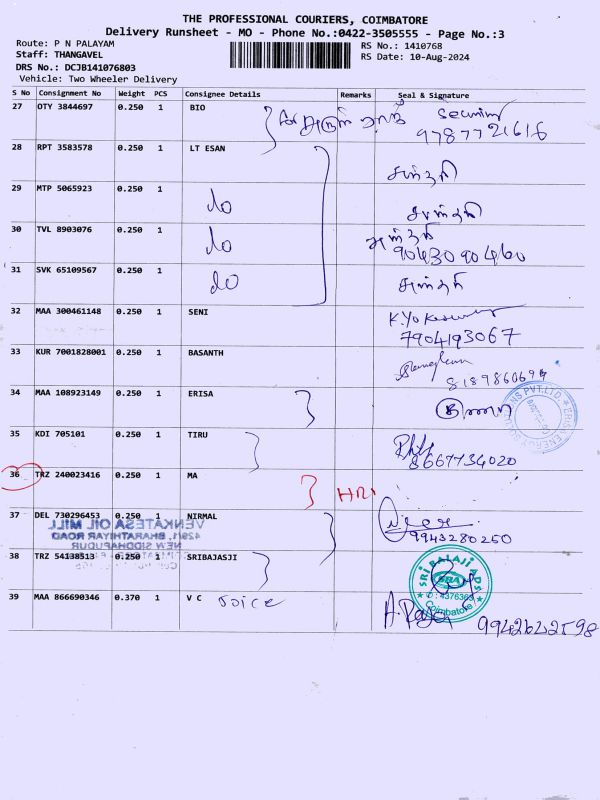 THE PROFESSIONAL COURIERS, COIMBATORE
Delivery Runsheet - MO - Phone No.:0422-3505555 - Page No.:3
Route: P N PALAYAM
RS No.: 1410768
Staff: THANGAVEL
RS Date: 10-Aug-2024
DRS No.: DCJB141076803
Vehicle: Two Wheeler Delivery
S No Consignment No Weight PCS Consignee Details Remarks Seal & Signature
27 OTY 3844697 0.250 1 BIO
9787721616
28 RPT 3583578 0.250 1 LT ESAN
29 MTP 5065923 0.250 1 do
30 TVL 8903076 0.250 1 do
9043090460
31 SVK 65109567 0.250 1 do
32 MAA 300461148 0.250 1 SENI
7904193067
33 KUR 7001828001 0.250 1 BASANTH
34 MAA 108923149 0.250 1 ERISA
35 KDI 705101 0.250 1 TIRU
8667734020
36 TRZ 240023416 0.250 1 MA
37 DEL 730296453 0.250 1 NIRMAL
9943280250
VENKATESA OIL MILL
429/1, BHARATHIYAR ROAD
NEW SIDDHAPUDUR
38 TRZ 54138513 0.250 1 SRIBAJASJI
SRI BALAJI ADS
SBA
Coimbatore
39 MAA 866690346 0.370 1 V C Voice